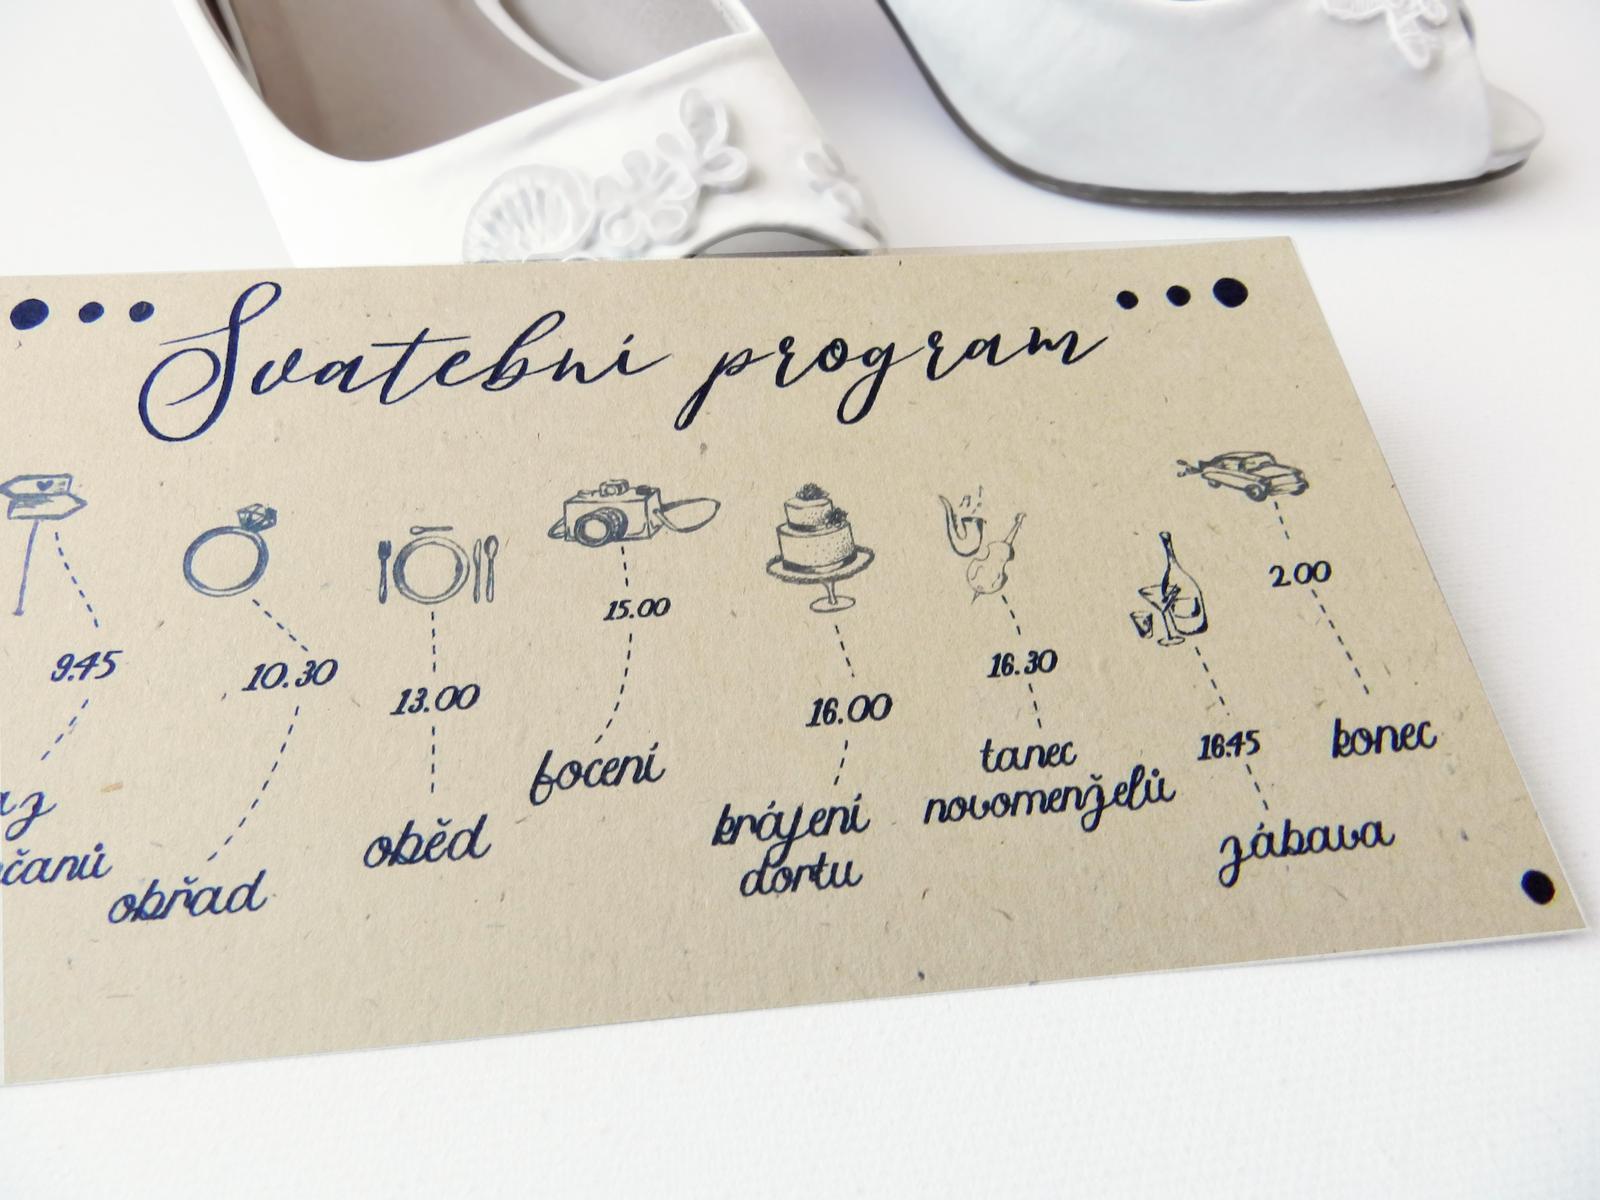 Svatební program
9.45
10.30
obřad
13.00
oběd
15.00
focení
16.00
krájení
dortu
16.30
tanec
novomenželů
16.45
zábava
2.00
konec